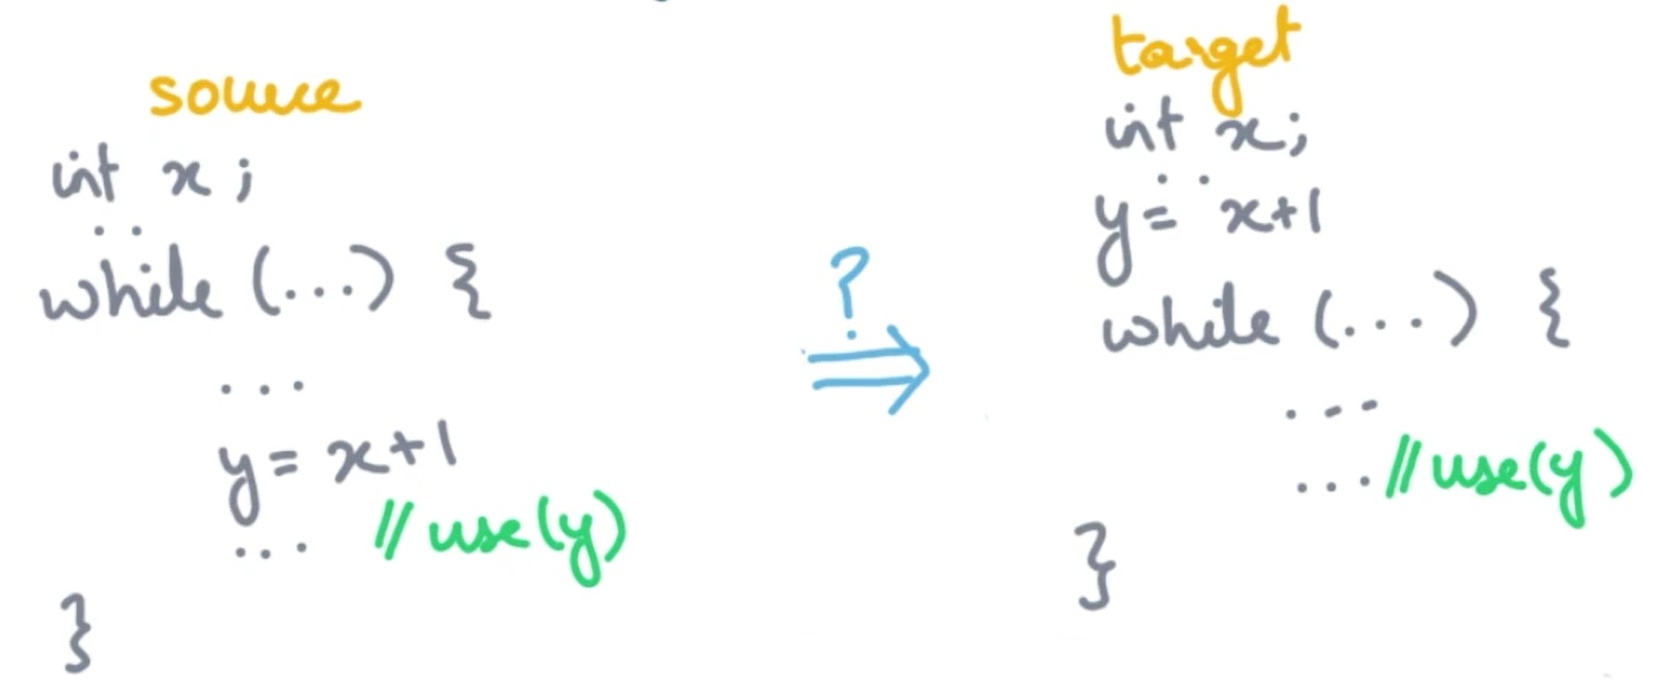 source
int x ;
..
while (...) {
...
y = x+1
... // use(y)
}
?
⇒
target
int x;
..
y = x+1
while (...) {
...
... // use(y)
}